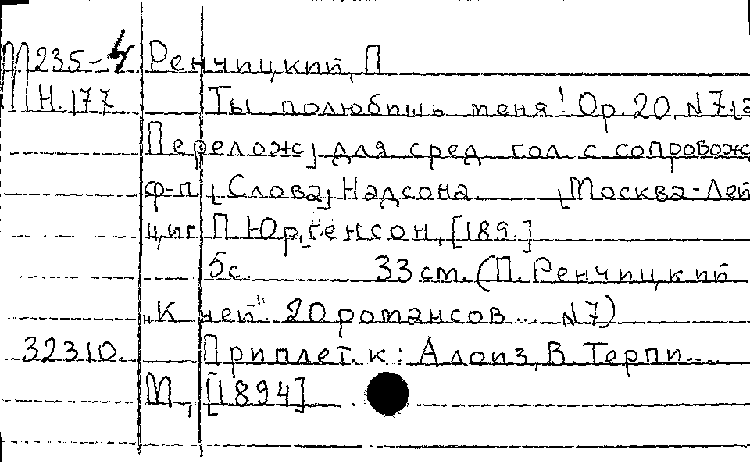 М235-4 Ренчицкий, П
Н.177 Ты полюбишь меня! Op. 20, N7,
Перелож, для сред гол с сопровож
ф-п, Слова, Надсона. Москва-Лей
циг П. Юргенсон, [189.]
5с. 33 см. (П. Ренчицкий
"К ней" 20 романсов... N7)
32310. Приплет. к: Алоиз, В. Терпи...
М., [1894]